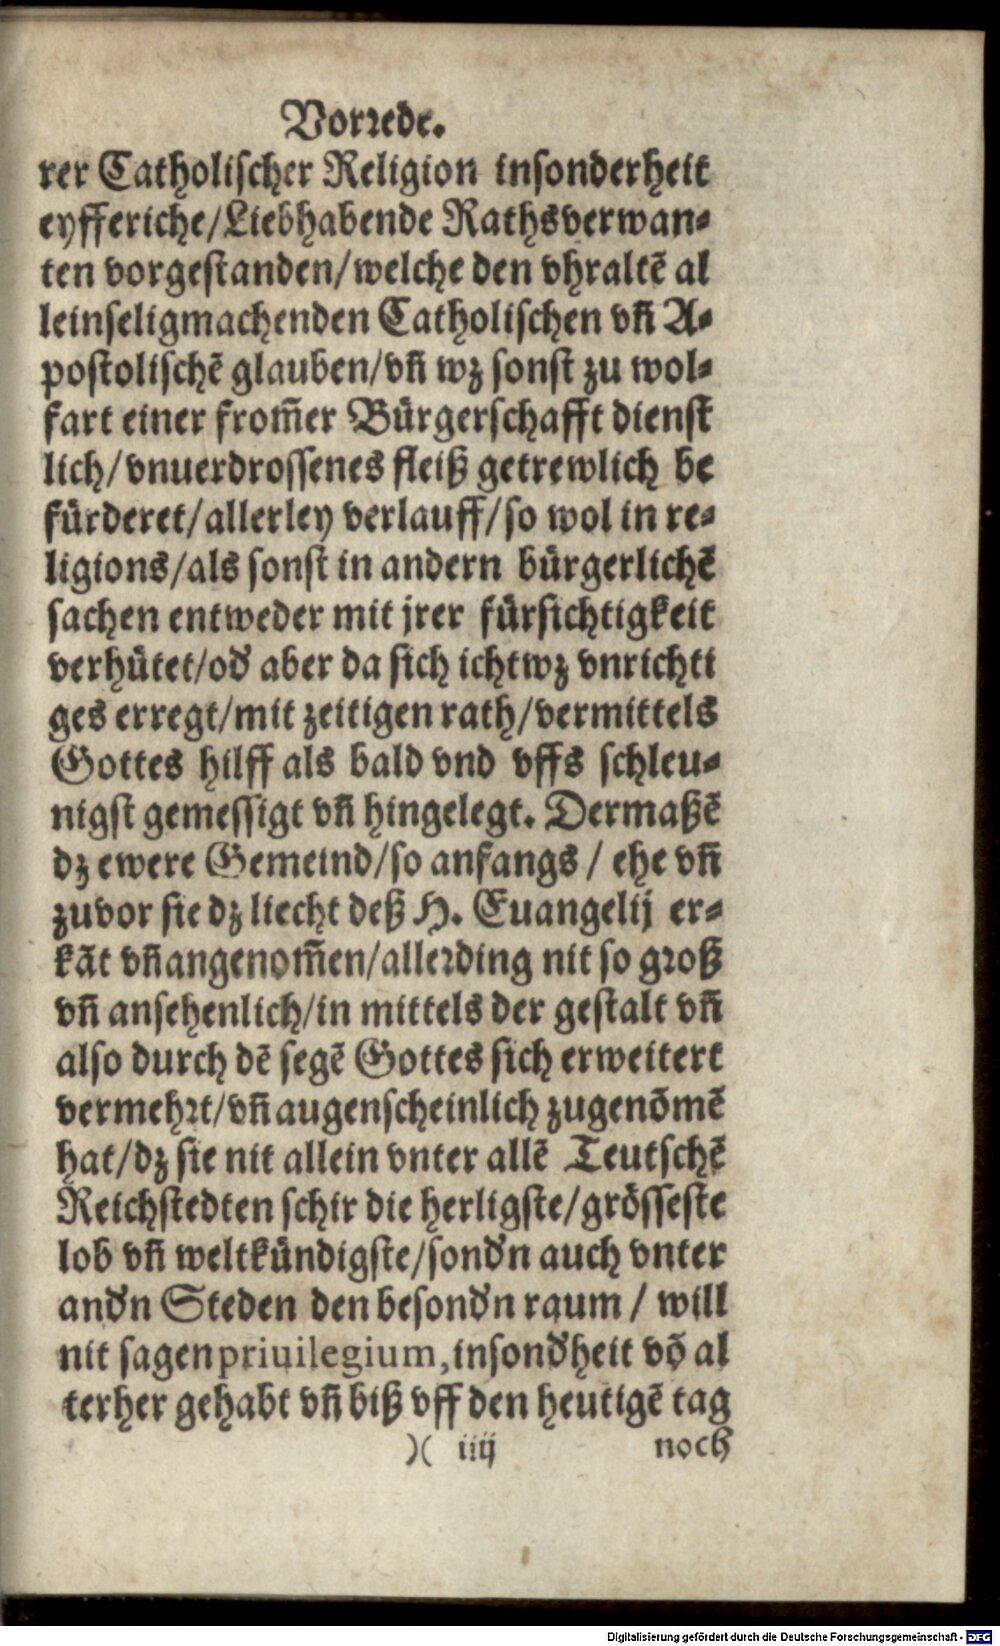 Vorꝛede.
rer Catholischer Religion insonderheit
eyfferiche/Liebhabende Rathsverwan-
ten vorgestanden/welche den vhraltẽ al
leinseligmachenden Catholischen vn̄ A-
postolischẽ glauben/vn̄ wz sonst zu wol-
fart einer from̄er Bürgerschafft dienst
lich/vnuerdrossenes fleiß getrewlich be
fürderet/allerley verlauff/so wol in re-
ligions/als sonst in andern bürgerlichẽ
sachen entweder mit jrer fürsichtigkeit
verhütet/od' aber da sich ichtwz vnrichti
ges erregt/mit zeitigen rath/vermittels
Gottes hilff als bald vnd vffs schleu-
nigst gemessigt vn̄ hingelegt. Dermaßẽ
dz ewere Gemeind/so anfangs / ehe vn̄
zuvor sie dz liecht deß H. Euangelij er-
kãt vn̄ angenom̄en/alleꝛding nit so gꝛoß
vn̄ ansehenlich/in mittels der gestalt vn̄
also durch dẽ segẽ Gottes sich erweitert
vermehꝛt/vn̄ augenscheinlich zugenõmẽ
hat/dz sie nit allein vnter allẽ Teutschẽ
Reichstedten schir die herligste/grösseste
lob vn̄ weltkündigste/sond'n auch vnter
and'n Steden den besond'n raum / will
nit sagen priuilegium, insond'heit võ al
terher gehabt vn̄ biß vff den heutigẽ tag
)( iiij noch
Digitalisierung gefördert durch die Deutsche Forschungsgemeinschaft - DFG